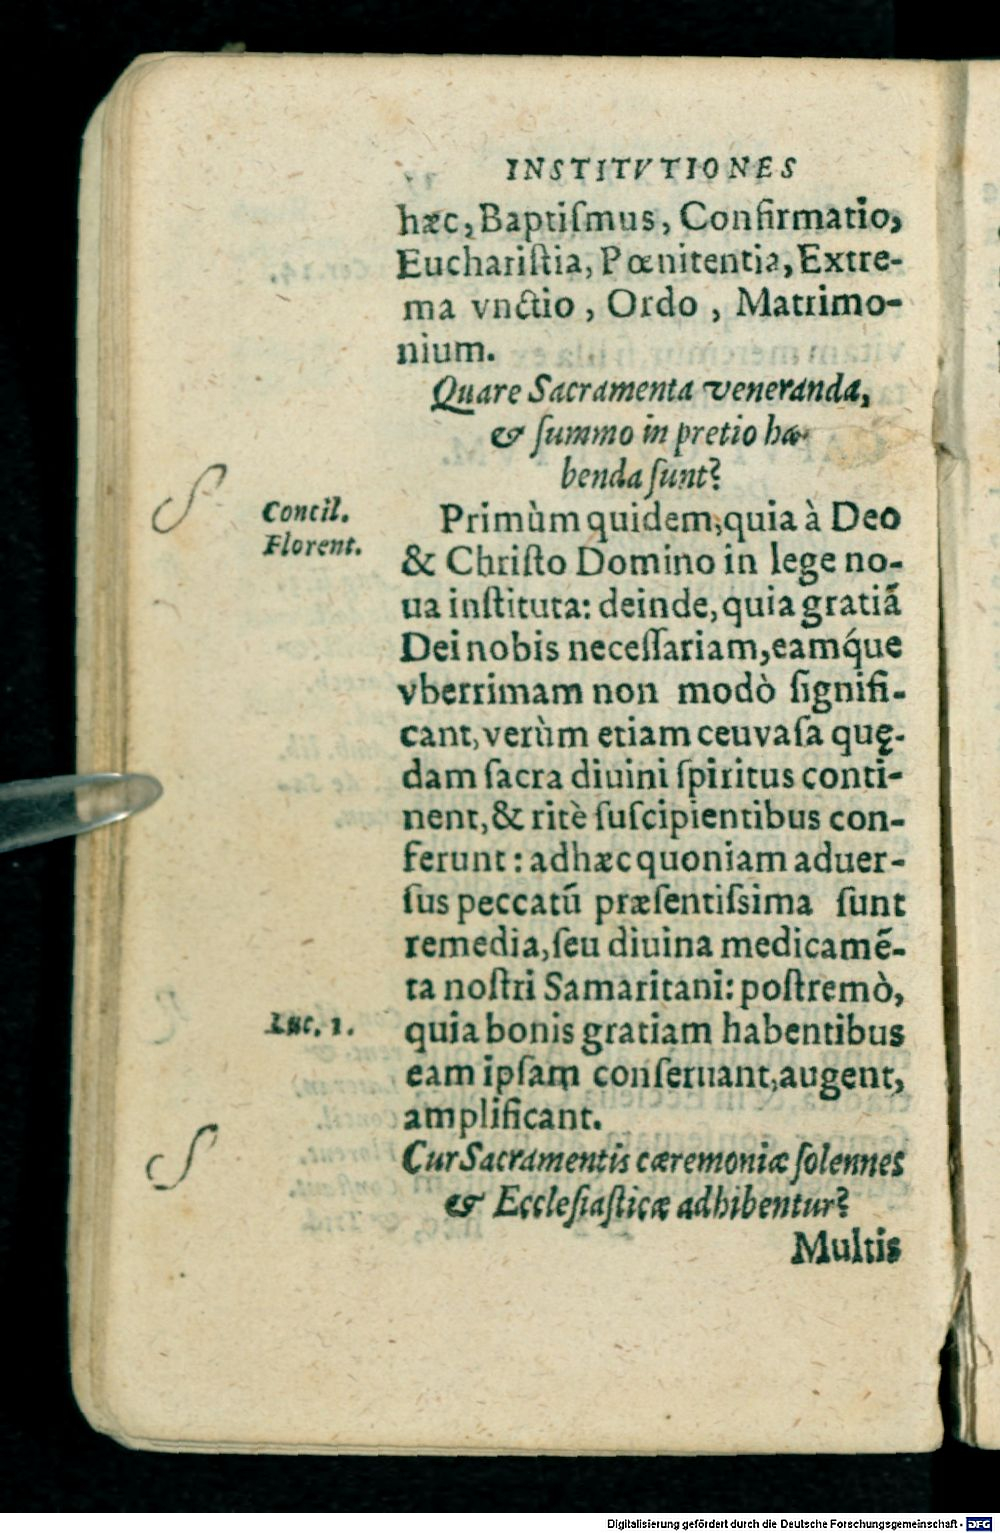 INSTITVTIONES
hæc, Baptiſmus, Confirmatio,
Euchariſtia, Pœnitentia, Extre-
ma vnctio, Ordo, Matrimo-
nium.
Quare Sacramenta veneranda,
& ſummo in pretio hæ-
benda ſunt?
Concil.
Florent.
Primùm quidem, quia à Deo
& Chriſto Domino in lege no-
ua inſtituta: deinde, quia gratiã
Dei nobis neceſſariam, eamq́ue
vberrimam non modò ſignifi-
cant, verùm etiam ceu vaſa quę-
dam ſacra diuini ſpiritus conti-
nent, & ritè ſuſcipientibus con-
ferunt: adhæc quoniam aduer-
ſus peccatũ præſentiſsima ſunt
remedia, ſeu diuina medicamẽ-
ta noſtri Samaritani: poſtremò,
Luc. 1.
quia bonis gratiam habentibus
eam ipſam conſeruant, augent,
amplificant.
Cur Sacramentis cæremoniæ ſolennes
& Eccleſiaſticæ adhibentur?
Multis
Digitalisierung gefördert durch die Deutsche Forschungsgemeinschaft - DFG